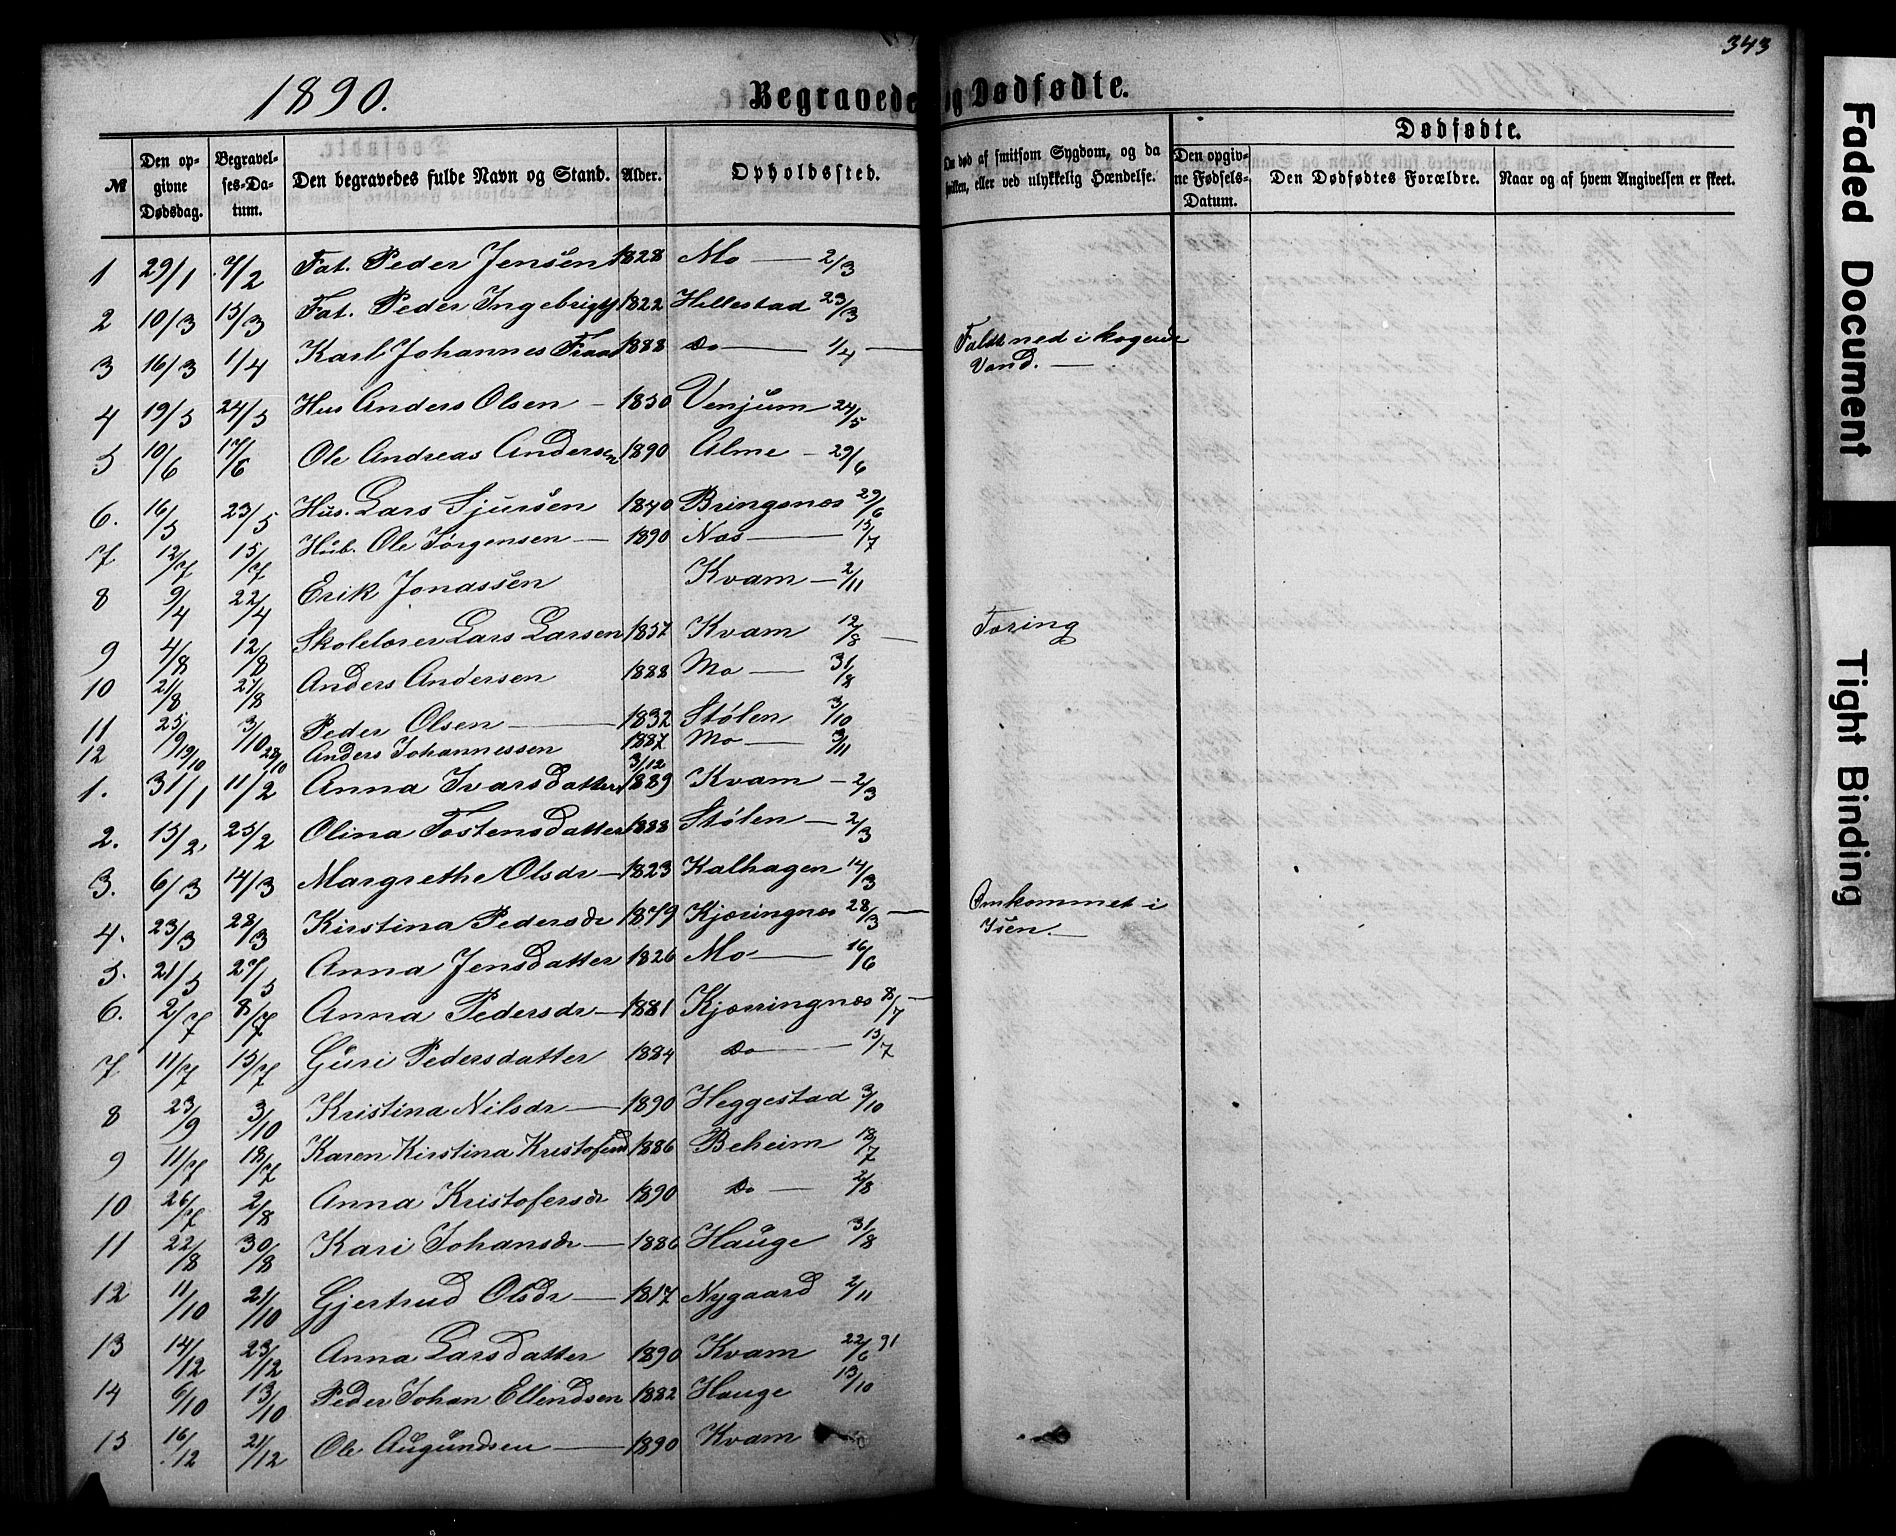 343
1890.
Begravede og Dødfødte.
№
Den opgivne Dødsdag.
Begravelses-Datum.
Den begravedes fulde Navn og Stand.
Alder.
Opholdssted.
Om død af smitsom Sygdom, og da hvilken, eller ved ulykkelig Hændelse.
Dødfødte.
Den opgivne Fødsels-Datum.
Den Dødfødtes Forældre.
Naar og af hvem Angivelsen er skeet.
1 29/1 7/2 Fat. Peder Jensen 1828 Mo — 2/3
2 10/3 15/3 Fat. Peder Ingebrigts 1822 Hillestad 23/3
3 16/3 1/4 Karl Johannes 1888 Do — 1/4 — Faldt ned i kogende
Vand. —
4 19/5 24/5 Hus Anders Olsen — 1850 Venjum 24/5
5 10/6 17/6 Ole Andreas Andersen 1890 Alme — 29/6
6. 16/5 23/5 Hus. Lars Sjursen 1840 Bringsnæs 29/6
7 12/7 15/7 Hub. Ole Jørgensen — 1890 Næs — 15/7
8 9/4 22/4 Erik Jonassen Kvam — 2/11
9 4/8 12/8 Skolelærer Lars Larsen 1857 Kvam 12/8 — Tæring
10 21/8 27/8 Anders Andersen 1888 Mo — 31/8
11 25/9 3/10 Peder Olsen — 1832 Stølen 3/10
12 19/10 28/10 Anders Johannessen 1887 Mo — 3/11
3/12
1. 31/1 11/2 Anna Ivarsdatter 1889 Kvam — 2/3
2. 15/2 25/2 Olina Tostensdatter 1888 Stølen — 2/3
3. 6/3 14/3 Margrethe Olsdr — 1823 Kalhagen 14/3
4. 23/3 28/3 Kirstina Pedersdr 1879 Kjæringnæs 28/3 — Omkommet i
Isen. —
5. 21/5 27/5 Anna Jensdatter 1826 Mo — 16/6
6. 2/7 8/7 Anna Pedersdr — 1881 Kjæringnæs 8/7 —
7 11/7 15/7 Guri Pedersdatter 1884 Do — 15/7
8 23/9 3/10 Kristina Nilsdr — 1890 Heggestad 3/10
9 11/7 18/7 Karen Kirstina Kristofersd 1886 Beheim 18/7
10 26/7 2/8 Anna Kristofersdr 1890 Do — 2/8
11 22/8 30/8 Kari Johansdr — 1886 Hauge 31/8
12 11/10 21/10 Gjertrud Olsdr — 1817 Nygaard 2/11
13 14/12 23/12 Anna Larsdatter 1890 Kvam 22/6 91
14 6/10 13/10 Peder Johan Ellendsen 1882 Hauge 13/10
15 16/12 21/12 Ole Augundsen — 1890 Kvam
Faded Document
Tight Binding